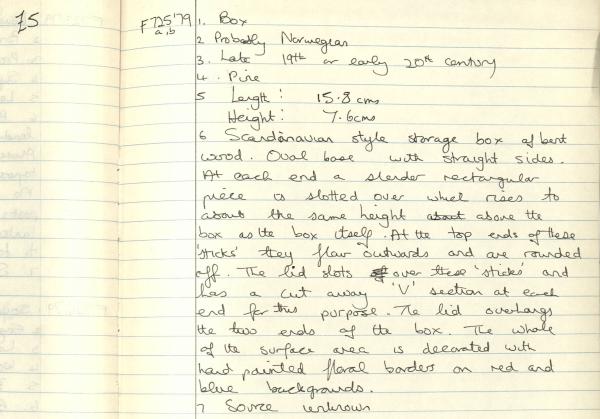 Z5
F725'79
a,b
1. Box
2 Probably Norwegian
3. Late 19th or early 20th century
4. Pine
5 Length: 15.8cms
Height: 7.6cms
6 Scandanavian style storage box of bent
wood. Oval base with straight sides.
At each end a slender rectangular
piece is slotted over which rises to
about the same height above the
box as the box itself. At the top ends of these
'sticks' they flaw outwards and are rounded
off. The lid slots over these 'sticks' and
has a cut away 'V' section at each
end for this purpose. The lid overhangs
the two ends of the box. The whole
of the surface area is decorated with
hand painted floral borders on red and
blue backgrounds.
7 Source unknown